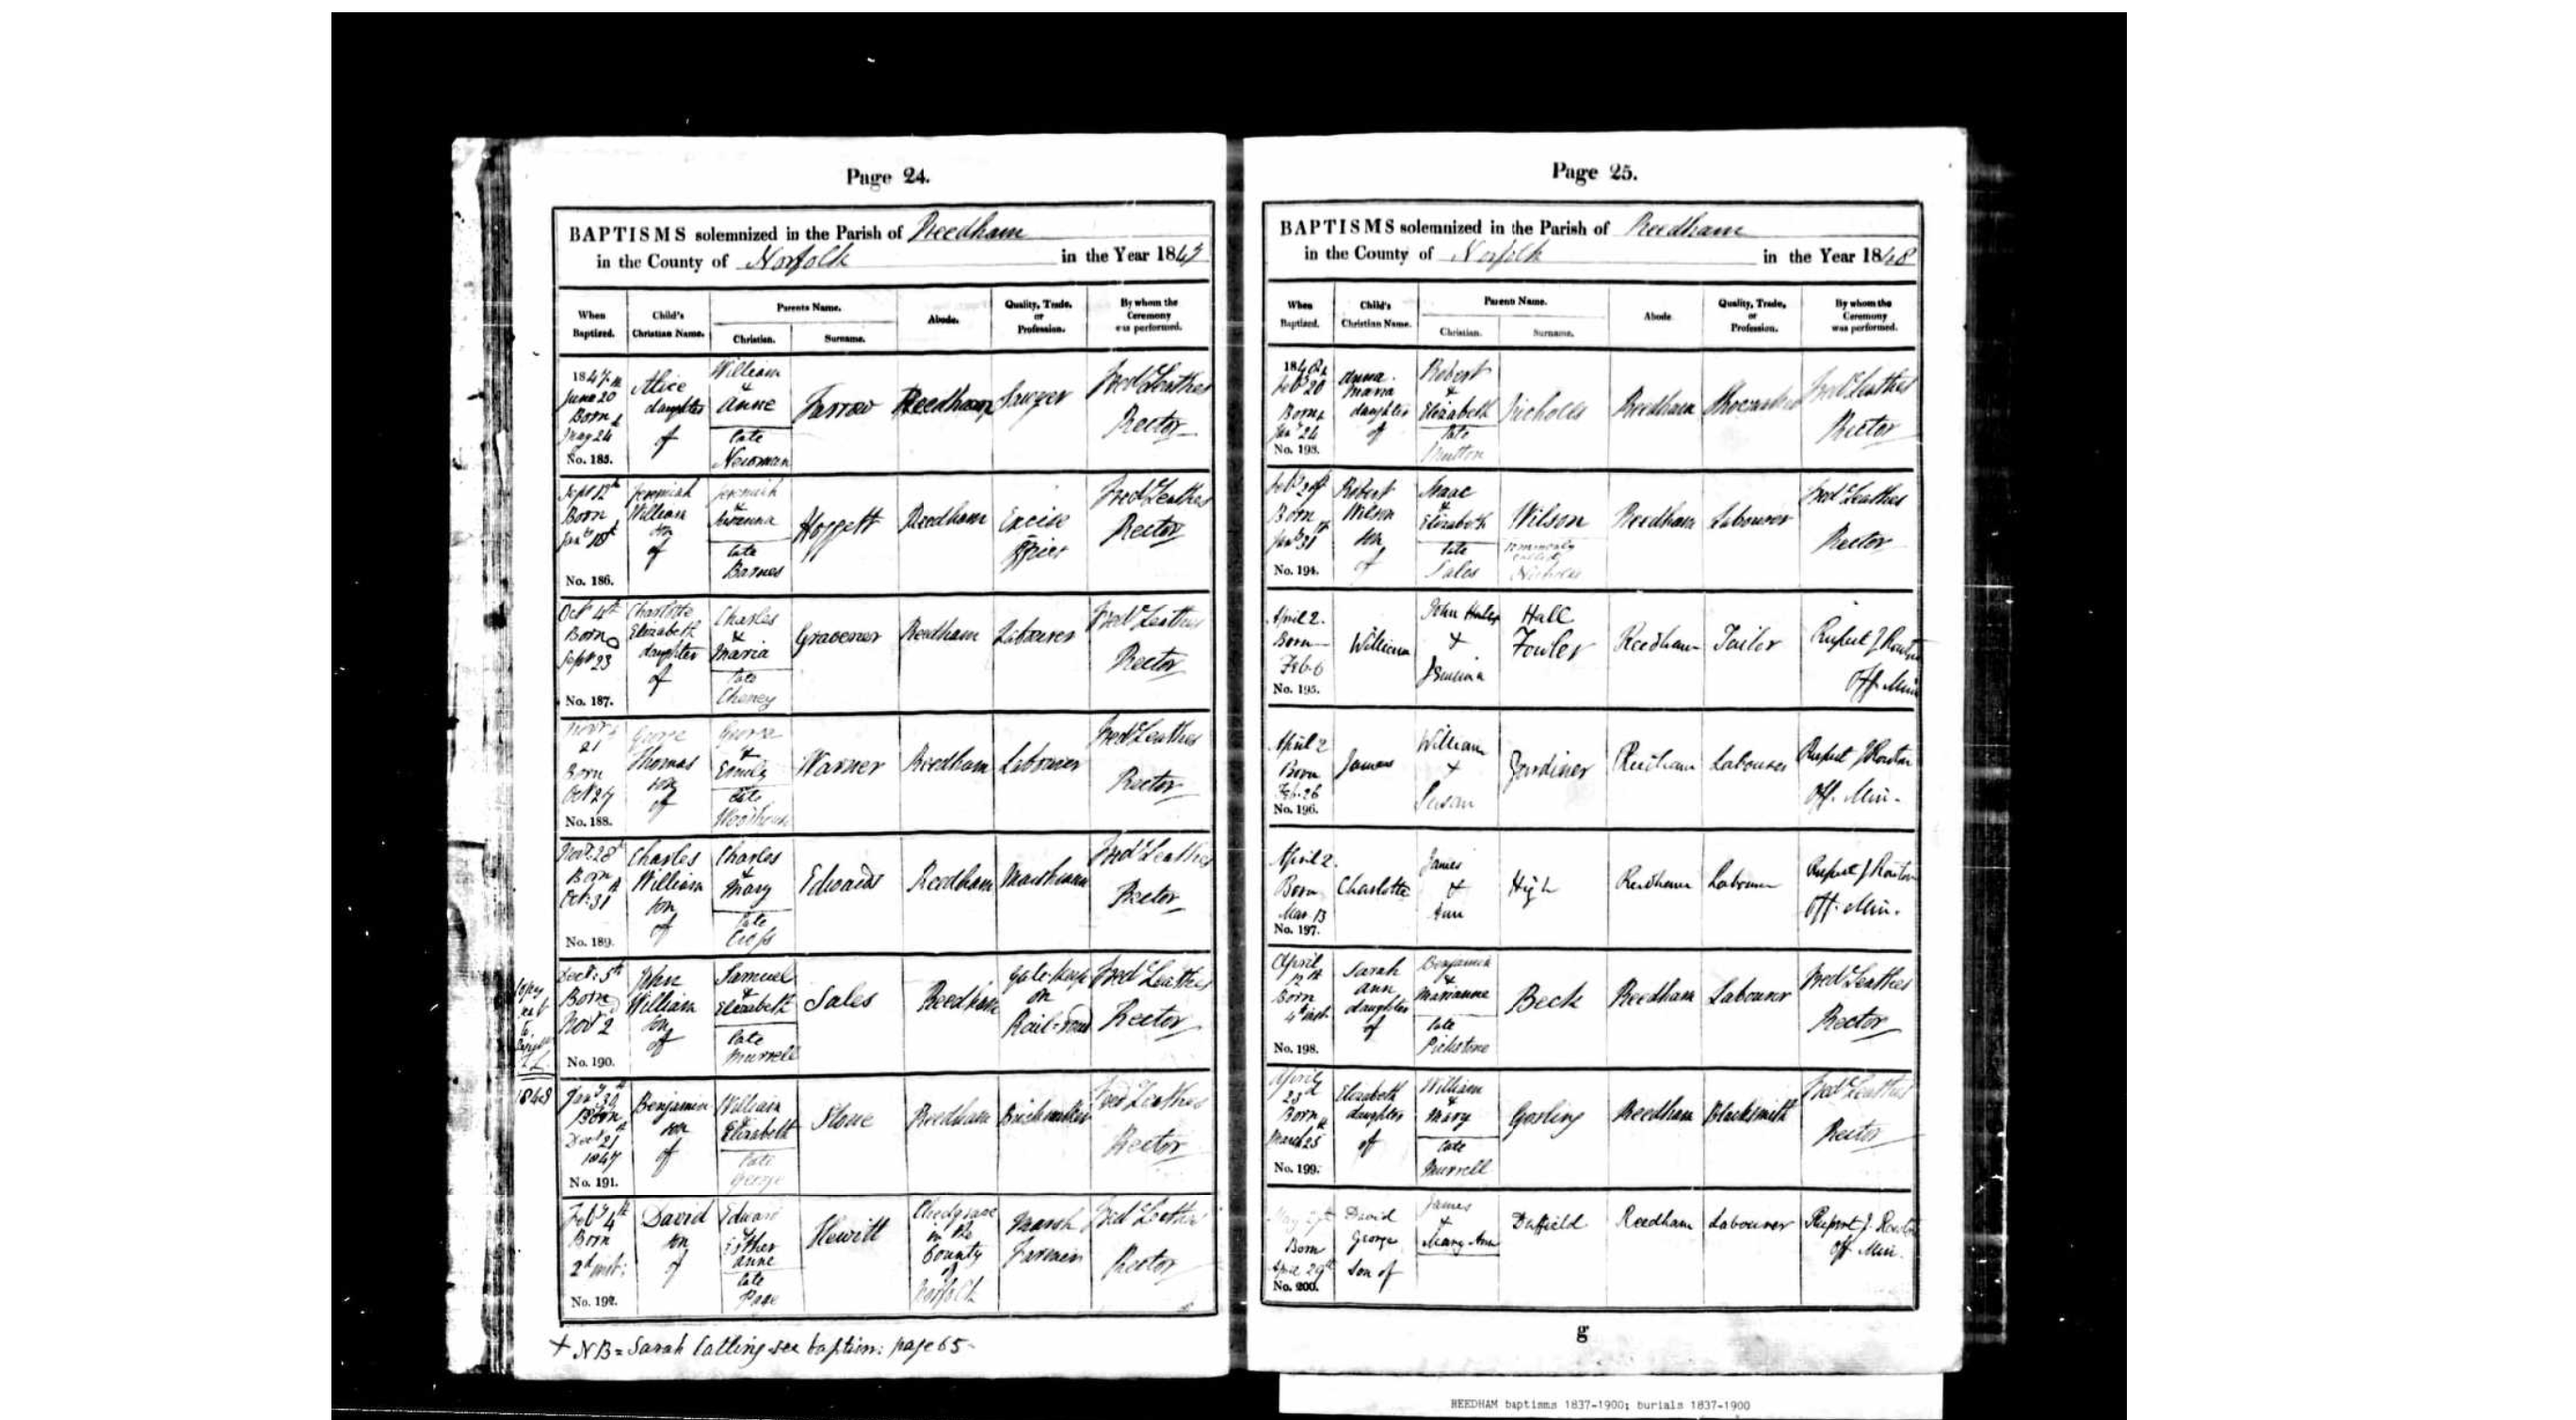 Page 24.
BAPTISMS solemnized in the Parish of Reedham
in the County of Norfolk in the Year 1847
When Baptized.
Child's Christian Name.
Parents Name.
Christian.
Surname.
Abode.
Quality, Trade, or Profession.
By whom the Ceremony was performed.
1847
June 20th
Born
May 24
No. 185.
Alice
daughter
of
William
&
Anne
late
Newman
Farrow
Reedham
Sawyer
Fred Leathes
Rector
Sept 12th
Born
No. 186.
Jeremiah
William
son
of
Jeremiah
&
Susanna
late
Barnes
Hoggett
Reedham
Excise
Officer
Fred Leathes
Rector
Oct 4th
Born
Sept 23
No. 187.
Charlotte
Elizabeth
daughter
of
Charles
&
Maria
late
Cheney
Gravener
Reedham
Labourer
Fred Leathes
Rector
Novr
21
Born
Oct 24
No. 188.
George
Thomas
son
of
George
&
Emily
late
Woodhouse
Warner
Reedham
Labourer
Fred Leathes
Rector
Novr 28th
Born
Oct 31
No. 189.
Charles
William
son
of
Charles
&
Mary
late
Cross
Edwards
Reedham
Marshman
Fred Leathes
Rector
Decr 5th
Born
Novr 2
No. 190.
John
William
son
of
Samuel
&
Elizabeth
late
Murrell
Sales
Reedham
Gate-keeper
on
Rail-road
Fred Leathes
Rector
1848
Jany 30
Born
Decr 21
1847
No. 191.
Benjamin
son
of
William
&
Elizabeth
late
George
Stone
Reedham
Brickmaker
Fred Leathes
Rector
Feby 4th
Born
2d inst:
No. 192.
David
son
of
Edward
&
Esther
Anne
late
Page
Hewitt
Chedgrave
in the
County
of
Norfolk
Marsh
Fred Leathes
Rector
+ NB = Sarah Catling see baptism: page 65-
Page 25.
BAPTISMS solemnized in the Parish of Reedham
in the County of Norfolk in the Year 1848
When Baptized.
Child's Christian Name.
Parents Name.
Christian.
Surname.
Abode
Quality, Trade, or Profession.
By whom the Ceremony was performed.
1848
Feb 20
Born
Jany 24
No. 193.
Anna
Maria
daughter
of
Robert
&
Elizabeth
late
Mutton
Nicholls
Reedham
Shoemaker
Fred Leathes
Rector
Born
Jany 31
No. 194.
Robert
Wilson
son
of
Isaac
&
Elizabeth
late
Sales
Wilson
commonly
called
Nicholls
Reedham
Labourer
Fred Leathes
Rector
April 2.
Born
Feb 6
No. 195.
William
John
+
Jemima
Hall
Fowler
Reedham
Tailor
Rupert J Rowton
Off. Min
April 2
Born
Feb. 26
No. 196.
James
William
+
Susan
Gardiner
Reedham
Labourer
Rupert J Rowton
Off. Min.
April 2.
Born
Mar 13
No. 197.
Charlotte
James
+
Ann
High
Reedham
Labourer
Rupert J Rowton
Off. Min.
April
12th
Born
4th inst.
No. 198.
Sarah
Ann
daughter
of
Benjamin
&
Marianne
late
Pickstone
Beck
Reedham
Labourer
Fred Leathes
Rector
April
23d
Born
March 25
No. 199.
Elizabeth
daughter
of
William
&
Mary
late
Murrell
Gosling
Reedham
Blacksmith
Fred Leathes
Rector
May
Born
April 29th
No. 200.
David
George
Son of
James
+
Mary Ann
Duffield
Reedham
Labourer
Rupert J. Rowton
Off Min.
g
REEDHAM baptisms 1837-1900; burials 1837-1900